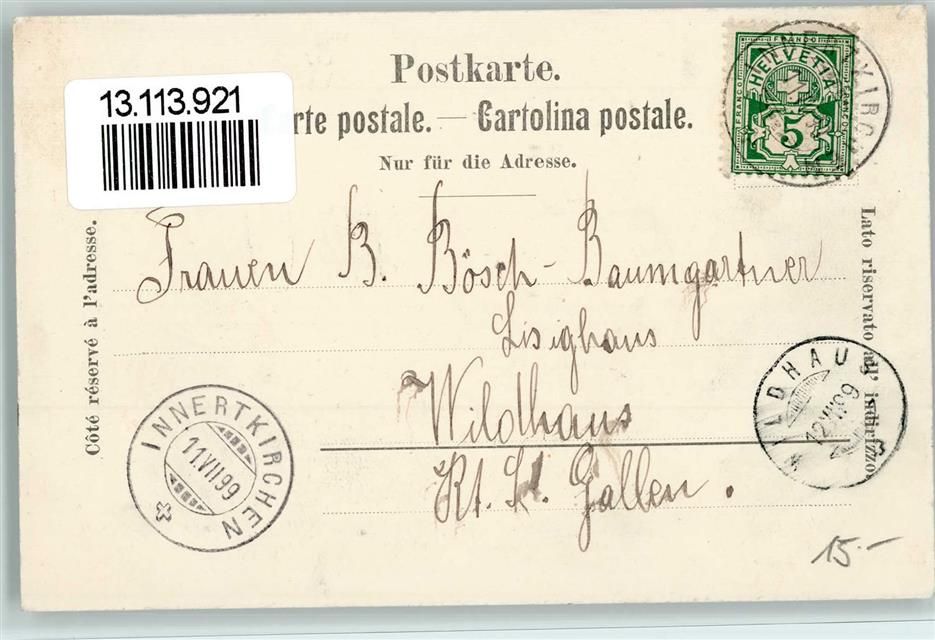 Postkarte.
13.113.921
rte postale. — Cartolina postale.
Nur für die Adresse.
FRANCO
HELVETIA
FRANCO
FRANCO
5
Côté réservé à l'adresse.
Lato riservato all' indirizzo
Frauen B. Bösch-Baumgartner
Lisighaus
Wildhaus
Kt. St. Gallen.
INNERTKIRCHEN
11.VII.99
WILDHAUS
12.VII.99
15.-